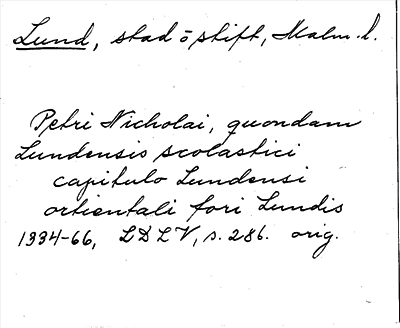 Lund, stad o stift, Malm. l.
Petri Nicholai, quondam
Lundensis scolastici
capitulo Lundensi
ortientali fori Lundis
1334-66, LDLV, s. 286. orig.